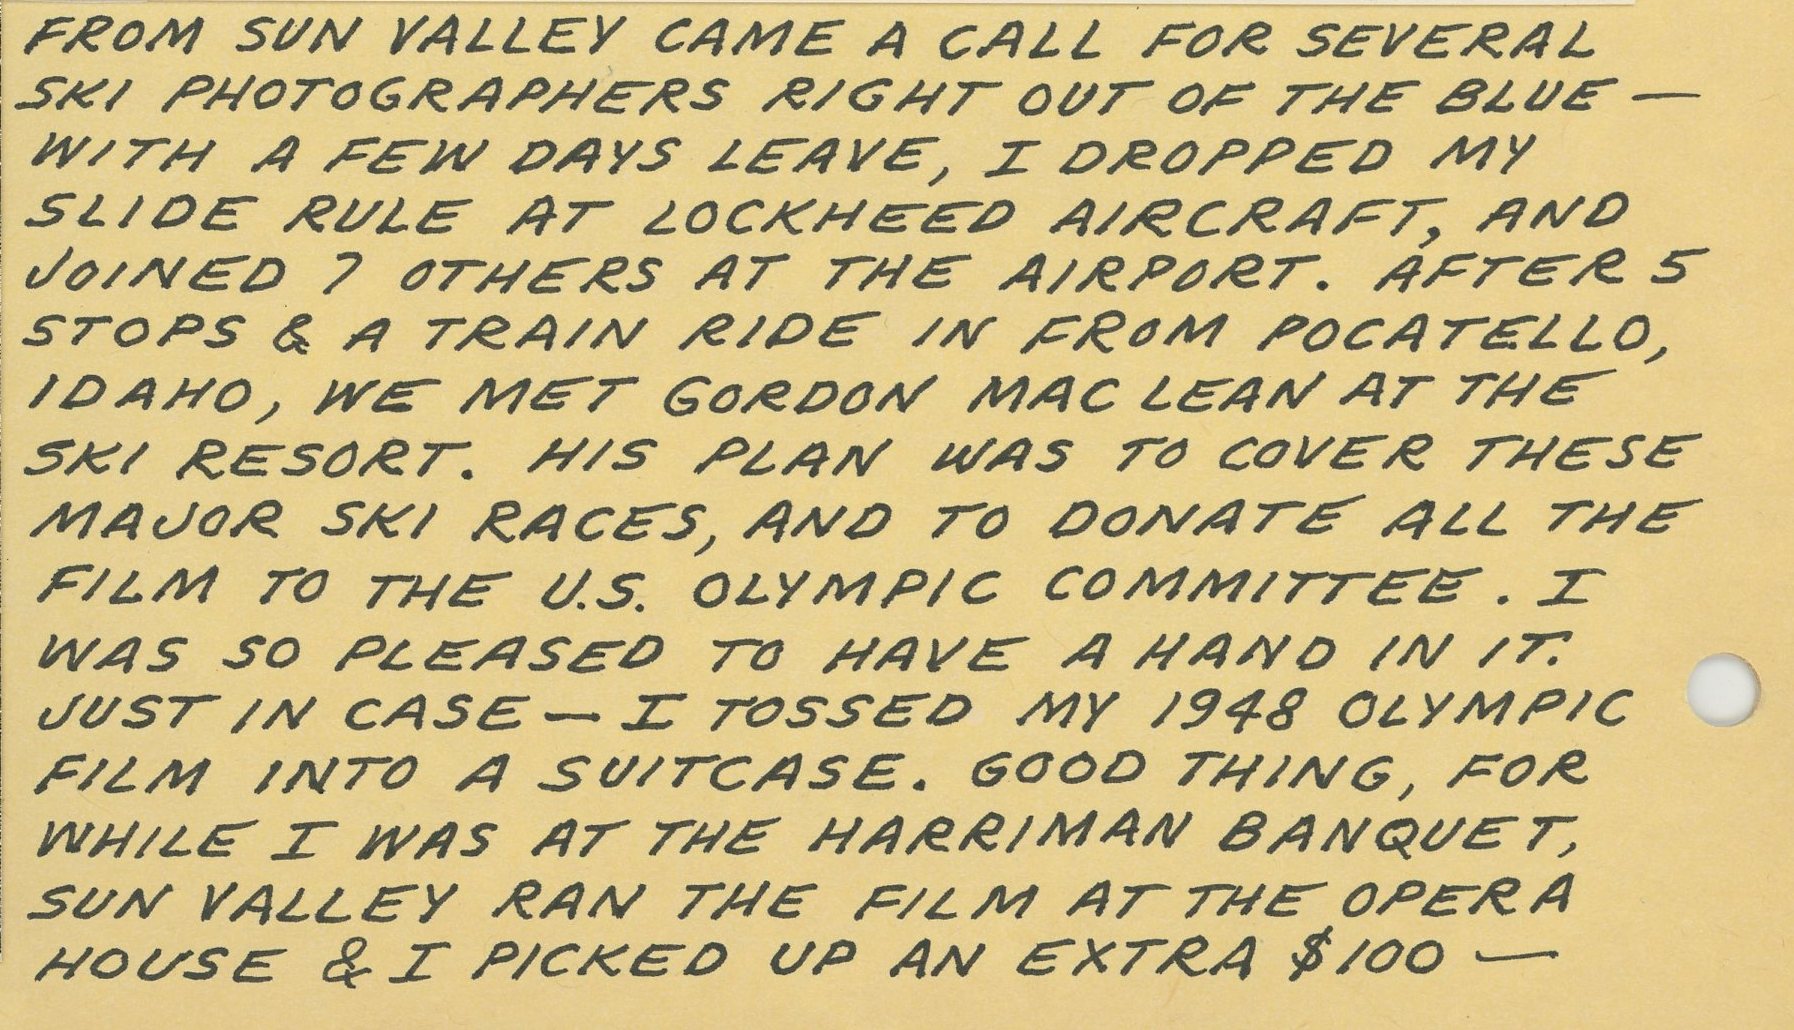 FROM SUN VALLEY CAME A CALL FOR SEVERAL
SKI PHOTOGRAPHERS RIGHT OUT OF THE BLUE —
WITH A FEW DAYS LEAVE, I DROPPED MY
SLIDE RULE AT LOCKHEED AIRCRAFT, AND
JOINED 7 OTHERS AT THE AIRPORT. AFTER 5
STOPS & A TRAIN RIDE IN FROM POCATELLO,
IDAHO, WE MET GORDON MAC LEAN AT THE
SKI RESORT. HIS PLAN WAS TO COVER THESE
MAJOR SKI RACES, AND TO DONATE ALL THE
FILM TO THE U.S. OLYMPIC COMMITTEE. I
WAS SO PLEASED TO HAVE A HAND IN IT.
JUST IN CASE — I TOSSED MY 1948 OLYMPIC
FILM INTO A SUITCASE. GOOD THING, FOR
WHILE I WAS AT THE HARRIMAN BANQUET,
SUN VALLEY RAN THE FILM AT THE OPERA
HOUSE & I PICKED UP AN EXTRA $100 —